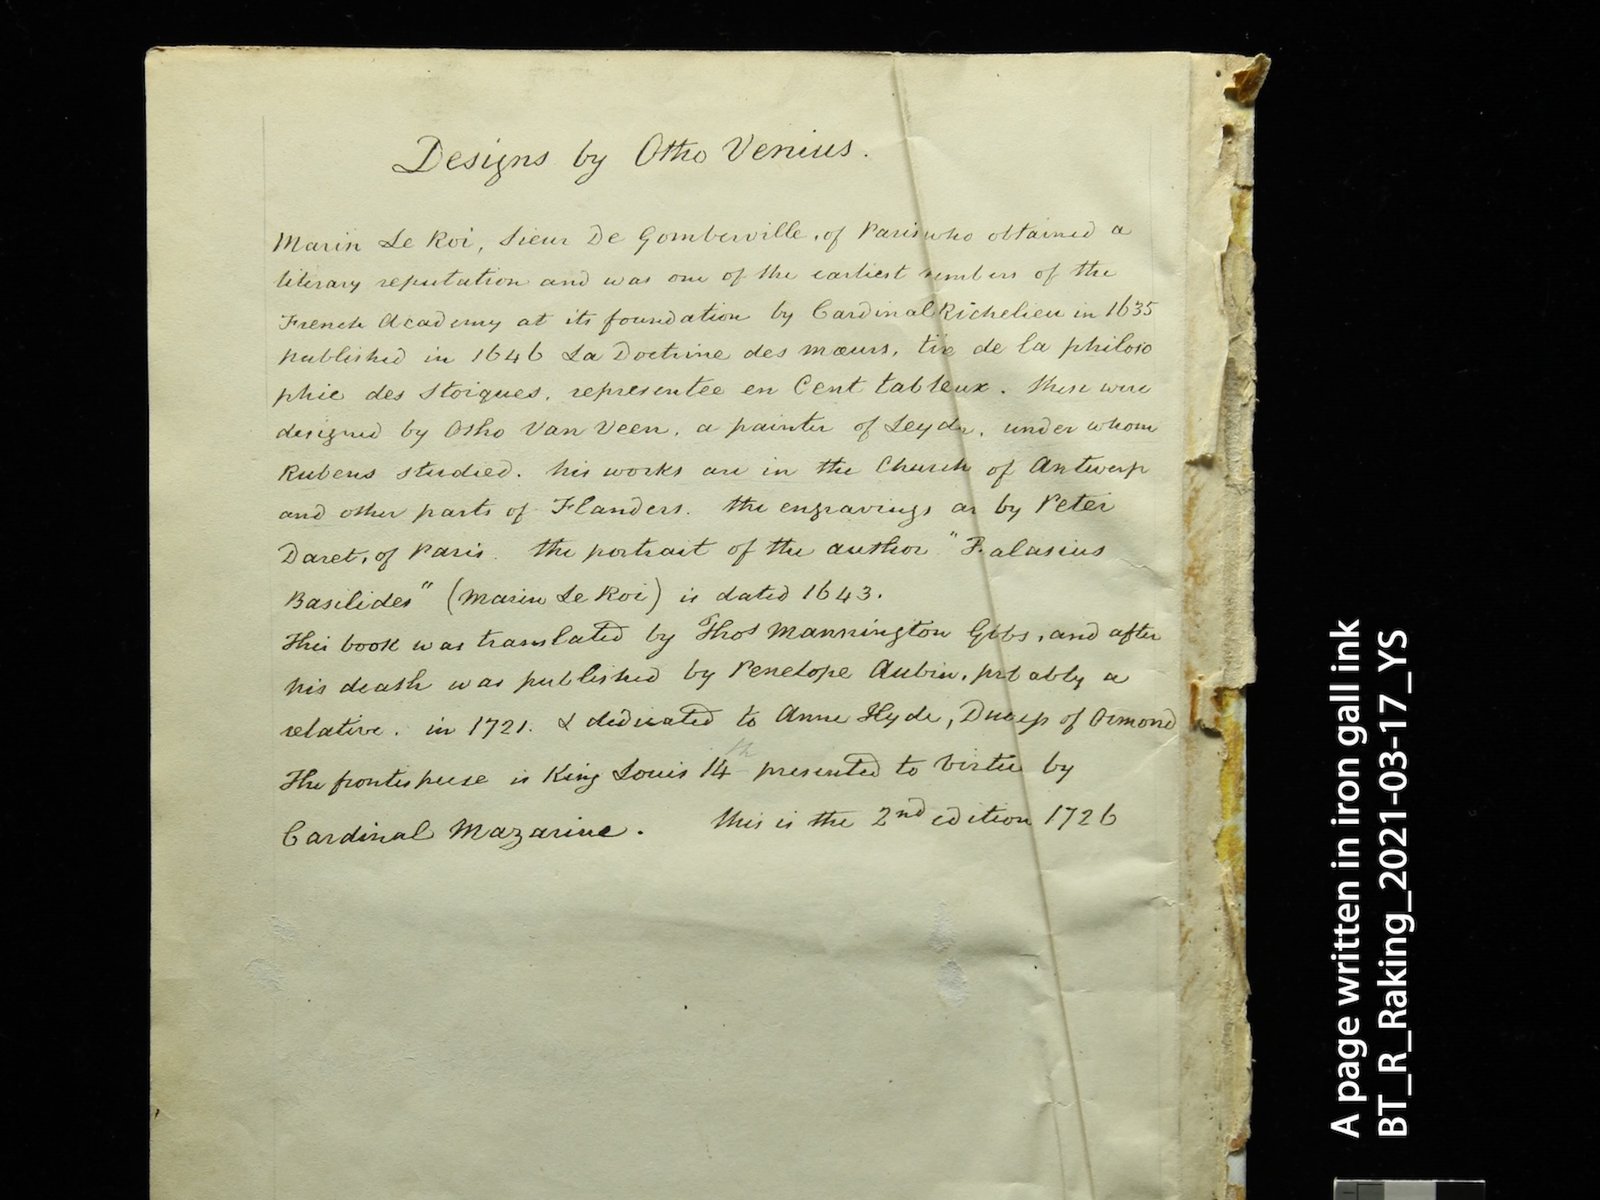 Designs by Otho Venius.
Marin Le Roi, Sieur De Gomberville, of Paris who obtained a
literary reputation and was one of the earliest members of the
French Academy at its foundation by Cardinal Richelieu in 1635
published in 1646 La Doctrine des mœurs, tire de la philoso
phie des Stoiques, representee en Cent tableux. These were
designed by Otho Van Veen, a painter of Leyde, under whom
Rubens studied. his works are in the Church of Antwerp
and other parts of Flanders. the engravings ar by Peter
Daret, of Paris. the portrait of the author "
Basilides" (Marin Le Roi) is dated 1643.
This book was translated by Thos Mannington Gibbs, and after
his death was published by Penelope Aubin, probably a
relative. in 1721. & dedicated to Anne Hyde, Duchess of Ormond
The frontispiece is King Louis 14th presented to Virtue by
Cardinal Mazarine. this is the 2nd edition 1726
A page written in iron gall ink
BT_R_Raking_2021-03-17_YS